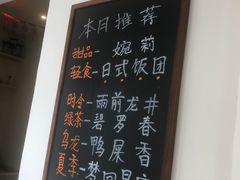 本月推荐
甜品-婉莉
轻食-日式饭团
时令-雨前龙井
绿茶-碧罗春
乌龙-鸭屎香
夏季-梦回